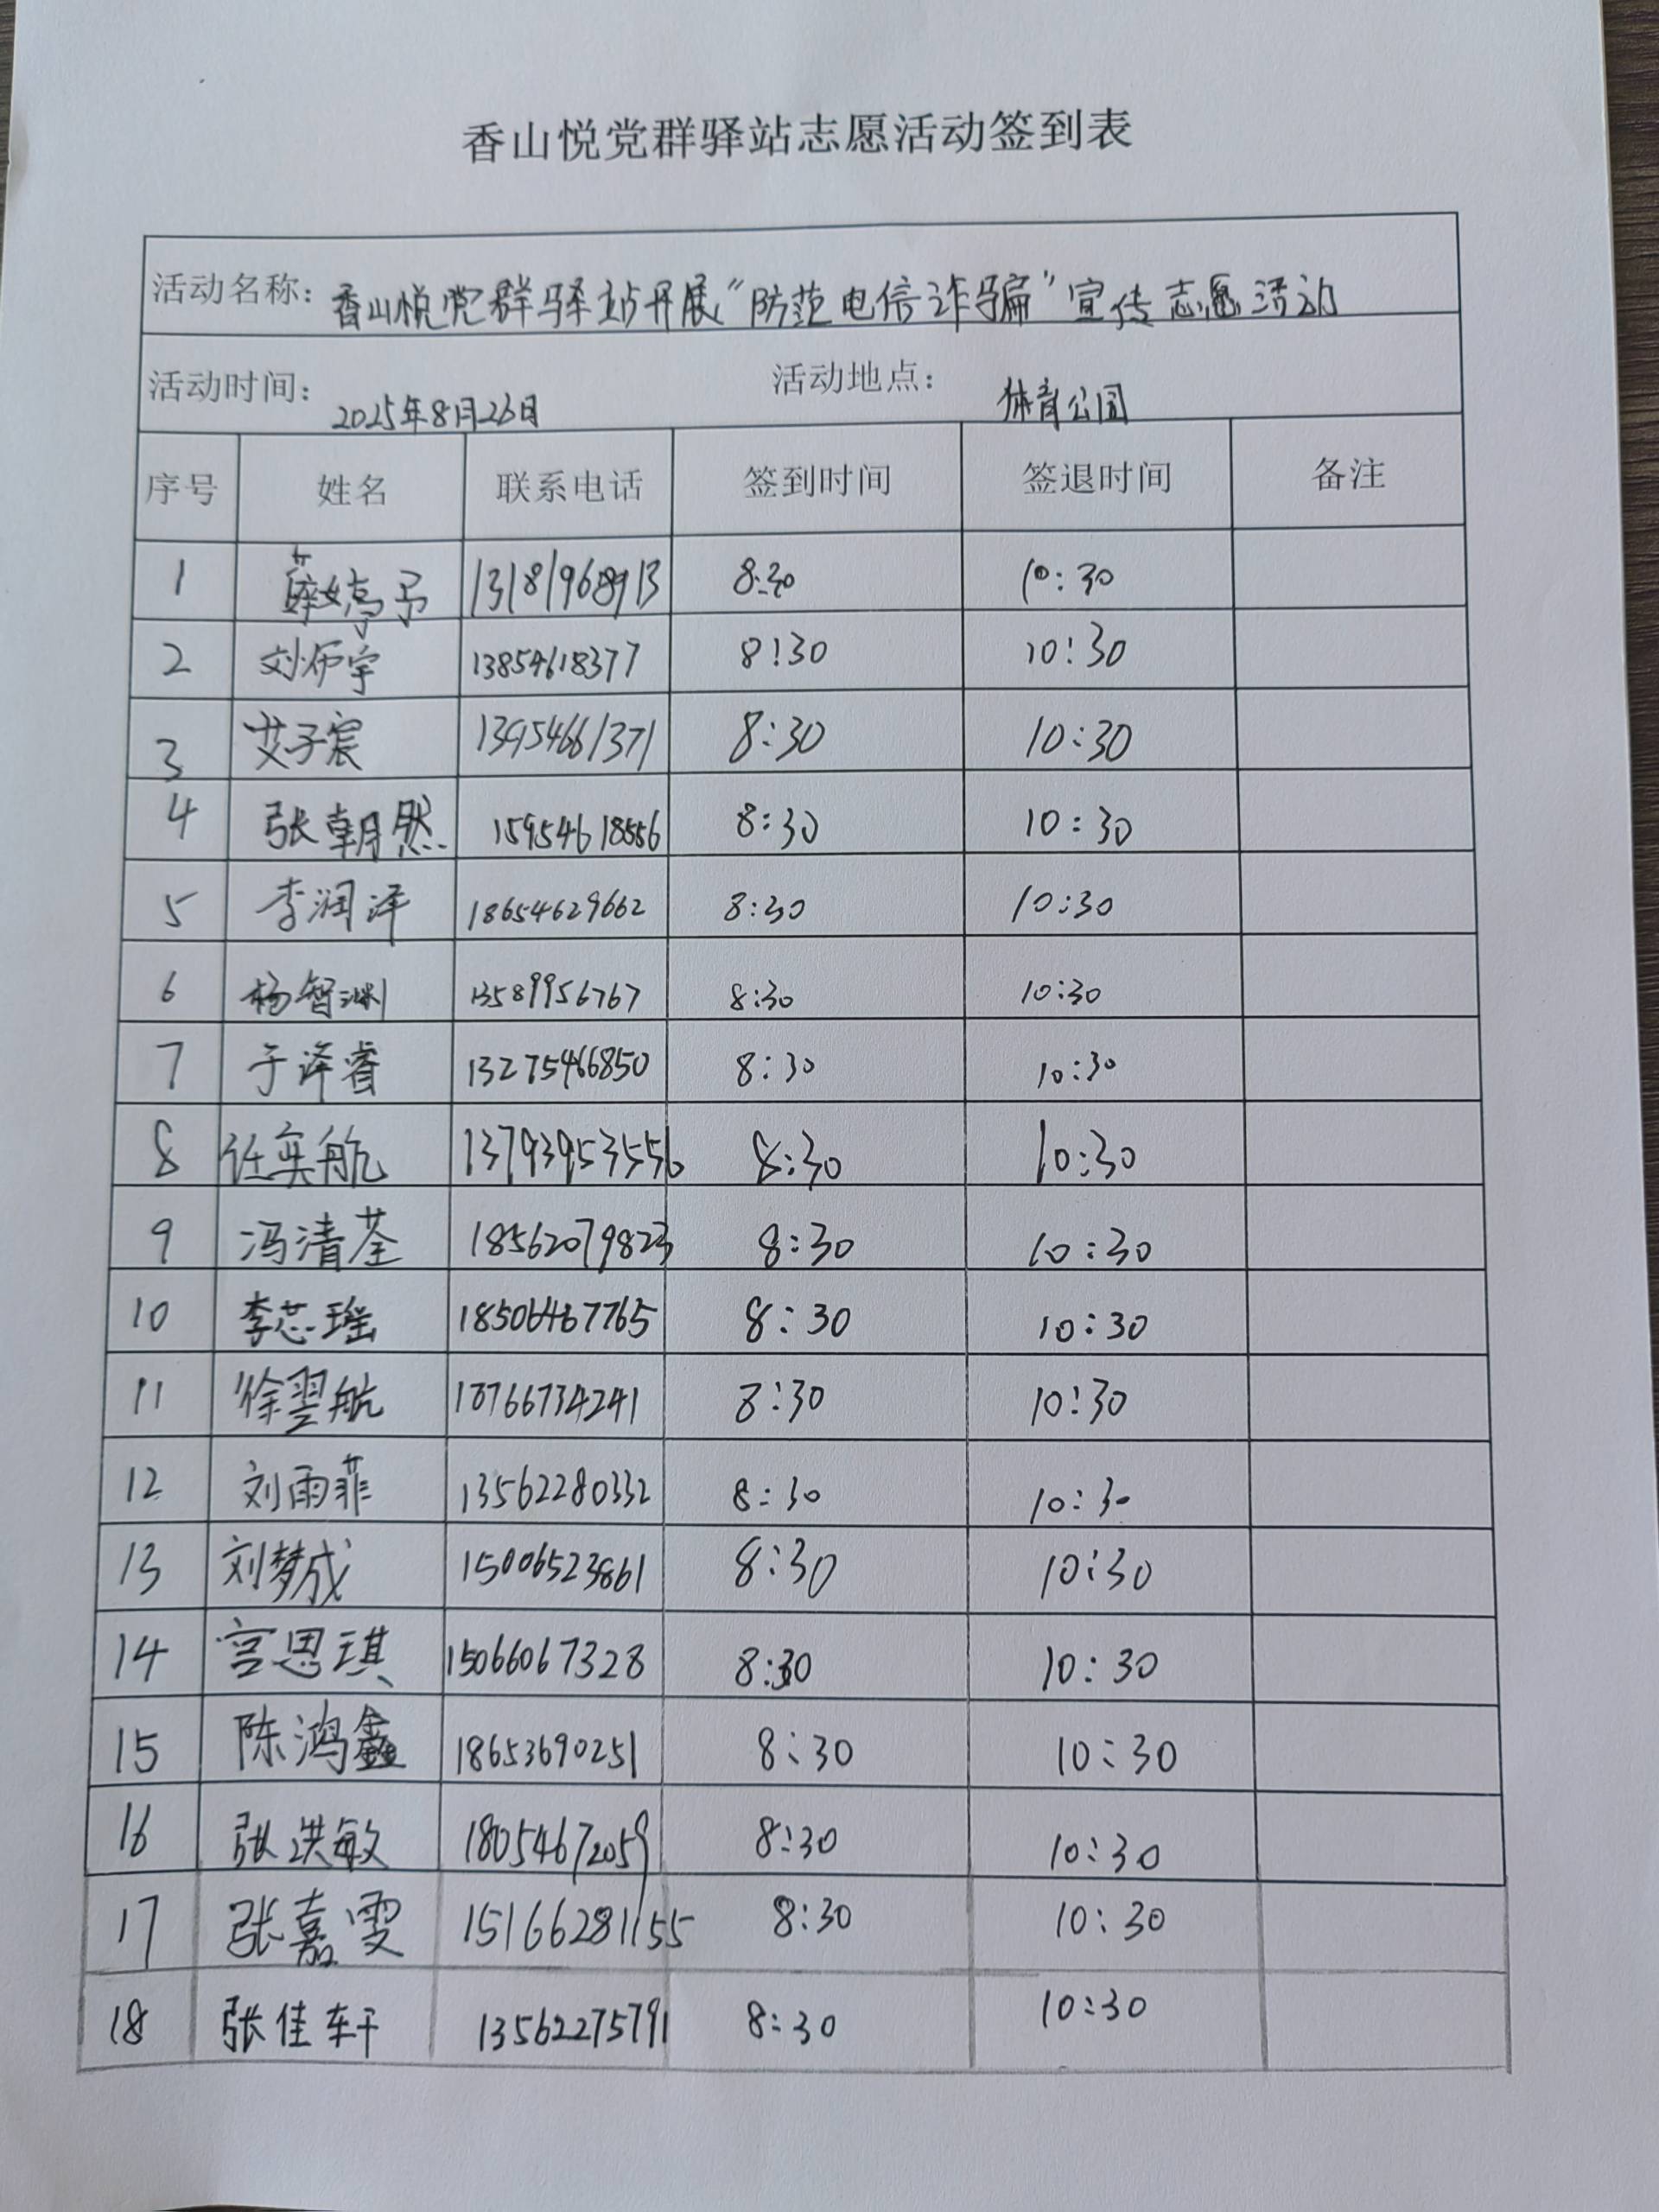 香山悦党群驿站志愿活动签到表
活动名称：香山悦党群驿站开展“防范电信诈骗”宣传志愿活动
活动时间：2025年8月26日 活动地点：体育公园
序号 姓名 联系电话 签到时间 签退时间 备注
1 薛婷予 13181968913 8:30 10:30
2 刘炳宇 13854618377 8:30 10:30
3 艾子宸 13954661371 8:30 10:30
4 张朝然 15954618556 8:30 10:30
5 李润泽 18654629662 8:30 10:30
6 杨智渊 13589956767 8:30 10:30
7 于泽睿 13275466850 8:30 10:30
8 任奕航 13793953556 8:30 10:30
9 冯清荃 18562079823 8:30 10:30
10 李芯瑶 18506467765 8:30 10:30
11 徐翌航 18766734241 8:30 10:30
12 刘雨菲 13562280332 8:30 10:30
13 刘梦成 15006523861 8:30 10:30
14 宫思琪 15066067328 8:30 10:30
15 陈鸿鑫 18653690251 8:30 10:30
16 张洪敏 18054672059 8:30 10:30
17 张嘉雯 15166281155 8:30 10:30
18 张佳轩 13562275791 8:30 10:30